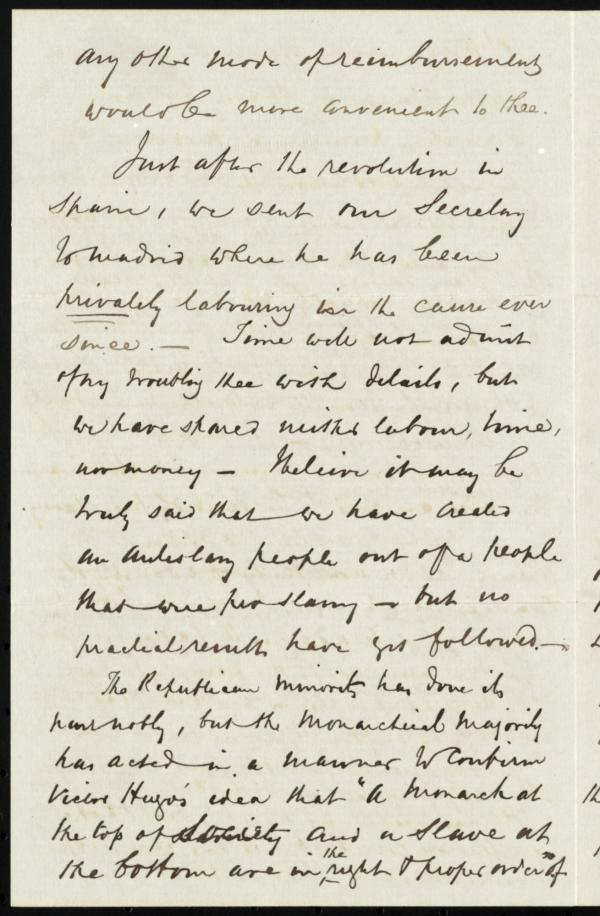 any other mode of reimbursement
would be more convenient to thee.
Just after the revolution in
Spain, we sent our Secretary
to Madrid where he has been
privately labouring in the cause ever
since. — Time will not admit
of my troubling thee with details, but
we have spared neither labour, time,
nor money — I believe it may be
truly said that we have created
an antislavery people out of a people
that were pro slavery — but no
practical results have yet followed. —
The Republican minority has done its
part nobly, but the Monarchical majority
has acted in a manner to confirm
Victor Hugo's idea that "A Monarch at
the top of Society and a Slave at
the bottom are in the right & proper order" of